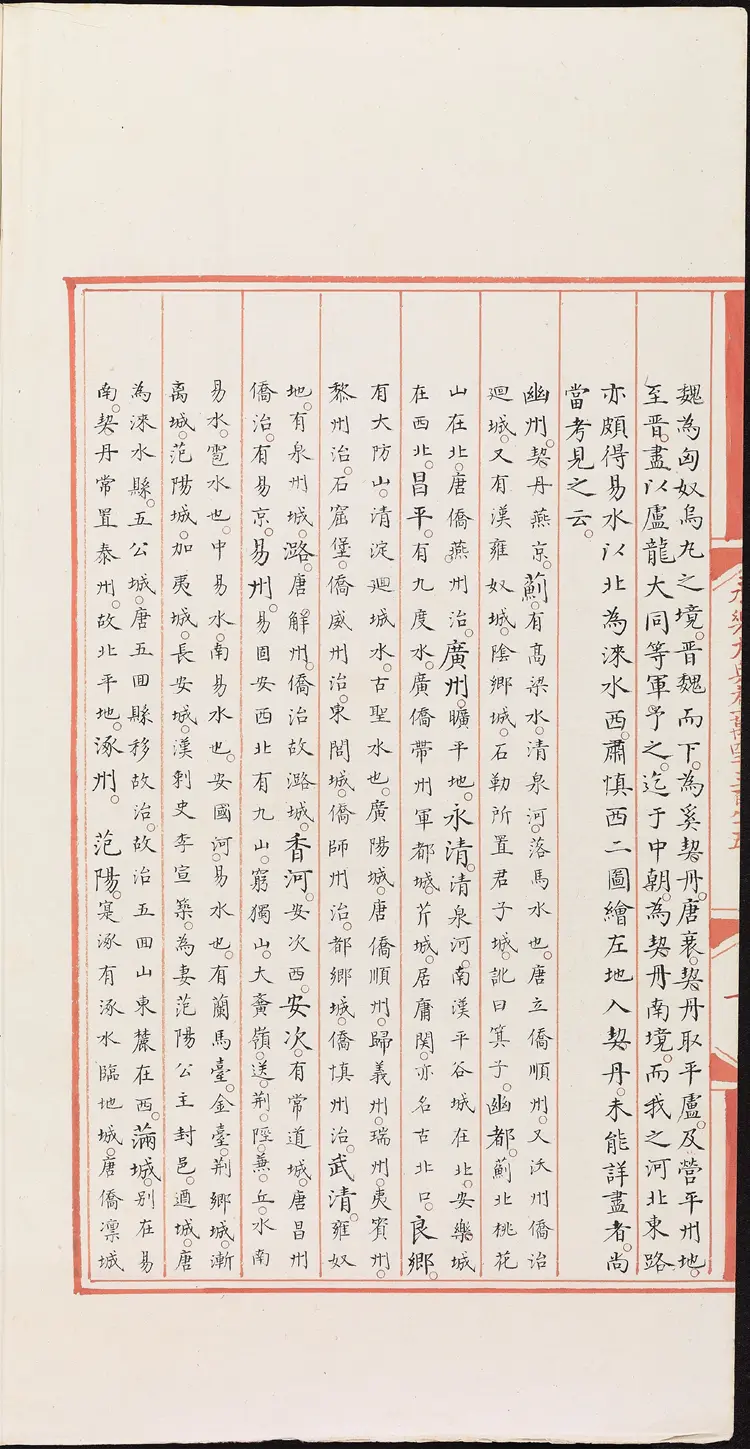 魏為匈奴烏九之境。晉魏而下。為奚契丹。唐衰。契丹取平盧。及營平州地。
至晉。盡以盧龍大同等軍予之。迄于中朝。為契丹南境。而我之河北東路
亦頗得易水以北為淶水西。肅慎西二圖繪左地入契丹。未能詳盡者。尚
當考見之云。
幽州。契丹燕京。薊。有髙梁水。清泉河。落馬水也。唐立僑順州。又沃州僑治
廻城。又有漢雍奴城。陰鄉城。石勒所置君子城。訛曰箕子。幽都。薊北桃花
山在北。唐僑燕州治。廣州。曠平地。永清。清泉河。南漢平谷城在北。安樂城
在西北。昌平。有九度水。廣僑帶州軍都城。芹城。居庸関。亦名古北口。良鄉。
有大防山。清淀廻城水。古聖水也。廣陽城。唐僑順州。歸義州。瑞州。夷賓州。
黎州治。石窟堡。僑威州治。東閭城。僑師州治。都鄉城。僑慎州治。武清。雍奴
地。有泉州城。潞。唐解州。僑治故潞城。香河。安次西。安次。有常道城。唐昌州
僑治。有易京。易州。易固安西北有九山。窮獨山。大䕏嶺。送。荆。陘。蒹。丘。水南
易水。雹水也。中易水。南易水也。安國河。易水也。有蘭馬臺。金臺。荆鄉城。漸
离城。范陽城。加夷城。長安城。漢刺史李宣築。為妻范陽公主封邑。遒城。唐
為淶水縣。五公城。唐五回縣移故治。故治五回山東麓在西。滿城。別在易
南。契丹常置泰州。故北平地。涿州。范陽。寔涿有涿水臨地城。唐僑凛城